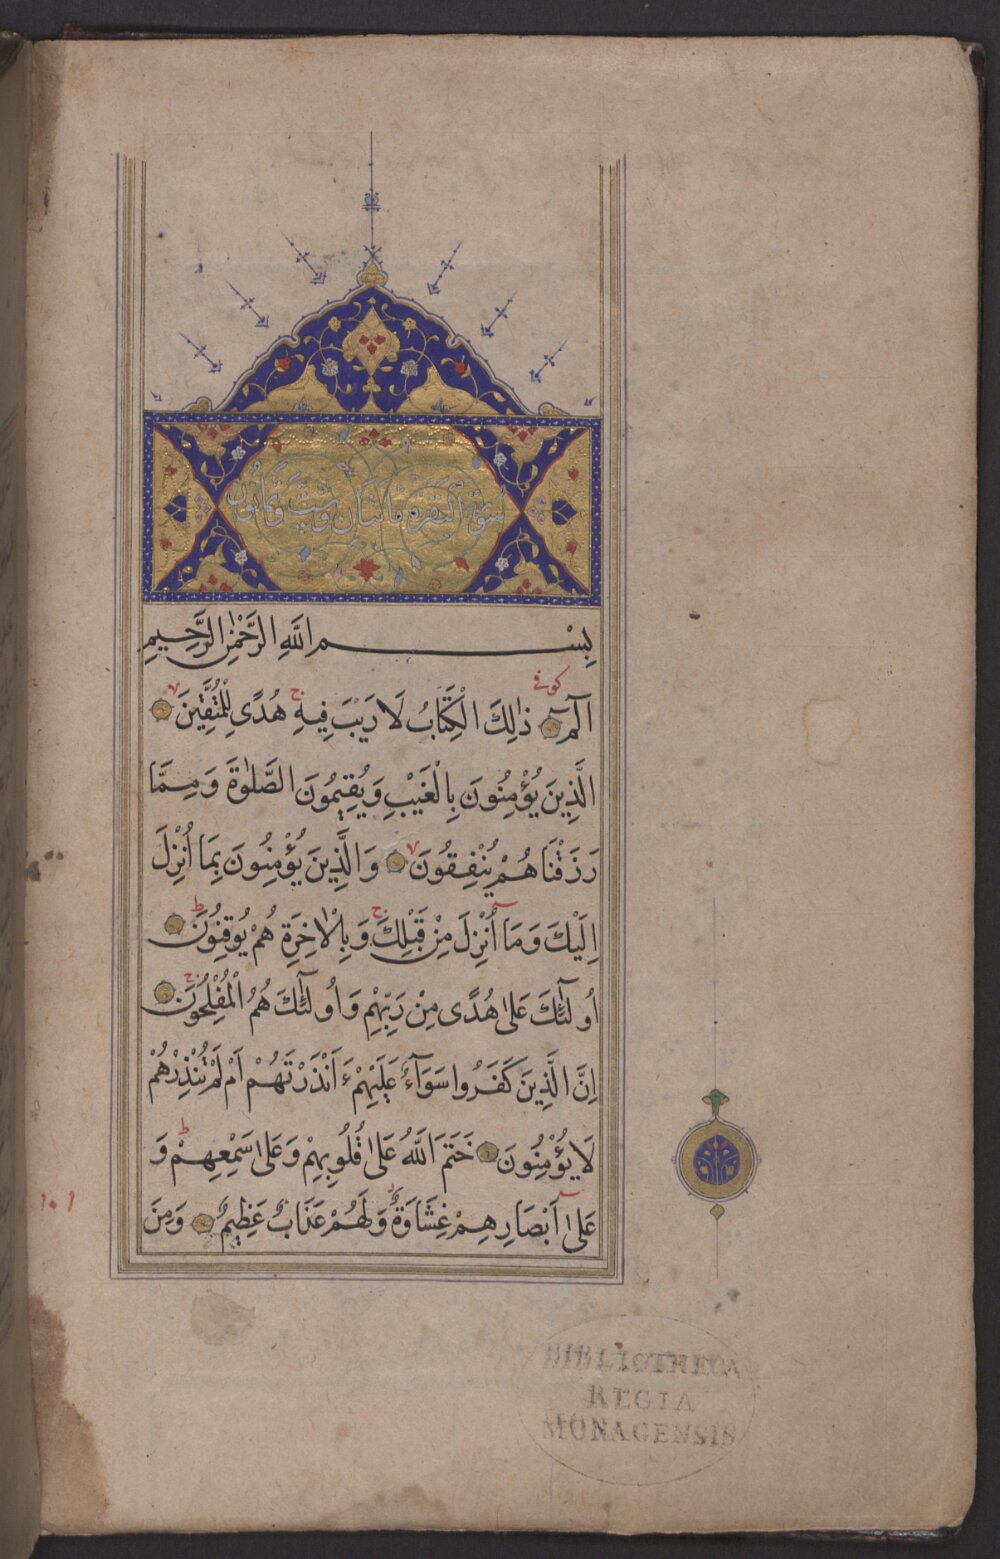 سورة البقرة مائتان وست وثمانون
بِسْمِ اللَّهِ الرَّحْمٰنِ الرَّحِيمِ
كوفى
الٓمٓ ذٰلِكَ الْكِتَابُ لَا رَيْبَ فِيهِ هُدًى لِلْمُتَّقِينَ
الَّذِينَ يُؤْمِنُونَ بِالْغَيْبِ وَيُقِيمُونَ الصَّلٰوةَ وَمِمَّا
رَزَقْنَاهُمْ يُنْفِقُونَ وَالَّذِينَ يُؤْمِنُونَ بِمَا أُنْزِلَ
اِلَيْكَ وَمَا أُنْزِلَ مِنْ قَبْلِكَ وَبِالْاٰخِرَةِ هُمْ يُوقِنُونَ
اُولٰٓئِكَ عَلٰى هُدًى مِنْ رَبِّهِمْ وَاُولٰٓئِكَ هُمُ الْمُفْلِحُونَ
اِنَّ الَّذِينَ كَفَرُوا سَوَآءٌ عَلَيْهِمْ ءَاَنْذَرْتَهُمْ اَمْ لَمْ تُنْذِرْهُمْ
لَا يُؤْمِنُونَ خَتَمَ اللَّهُ عَلٰى قُلُوبِهِمْ وَعَلٰى سَمْعِهِمْ وَ
عَلٰٓى اَبْصَارِهِمْ غِشَاوَةٌ وَلَهُمْ عَذَابٌ عَظِيمٌ وَمِنَ
BIBLIOTHECA
REGIA
MONACENSIS